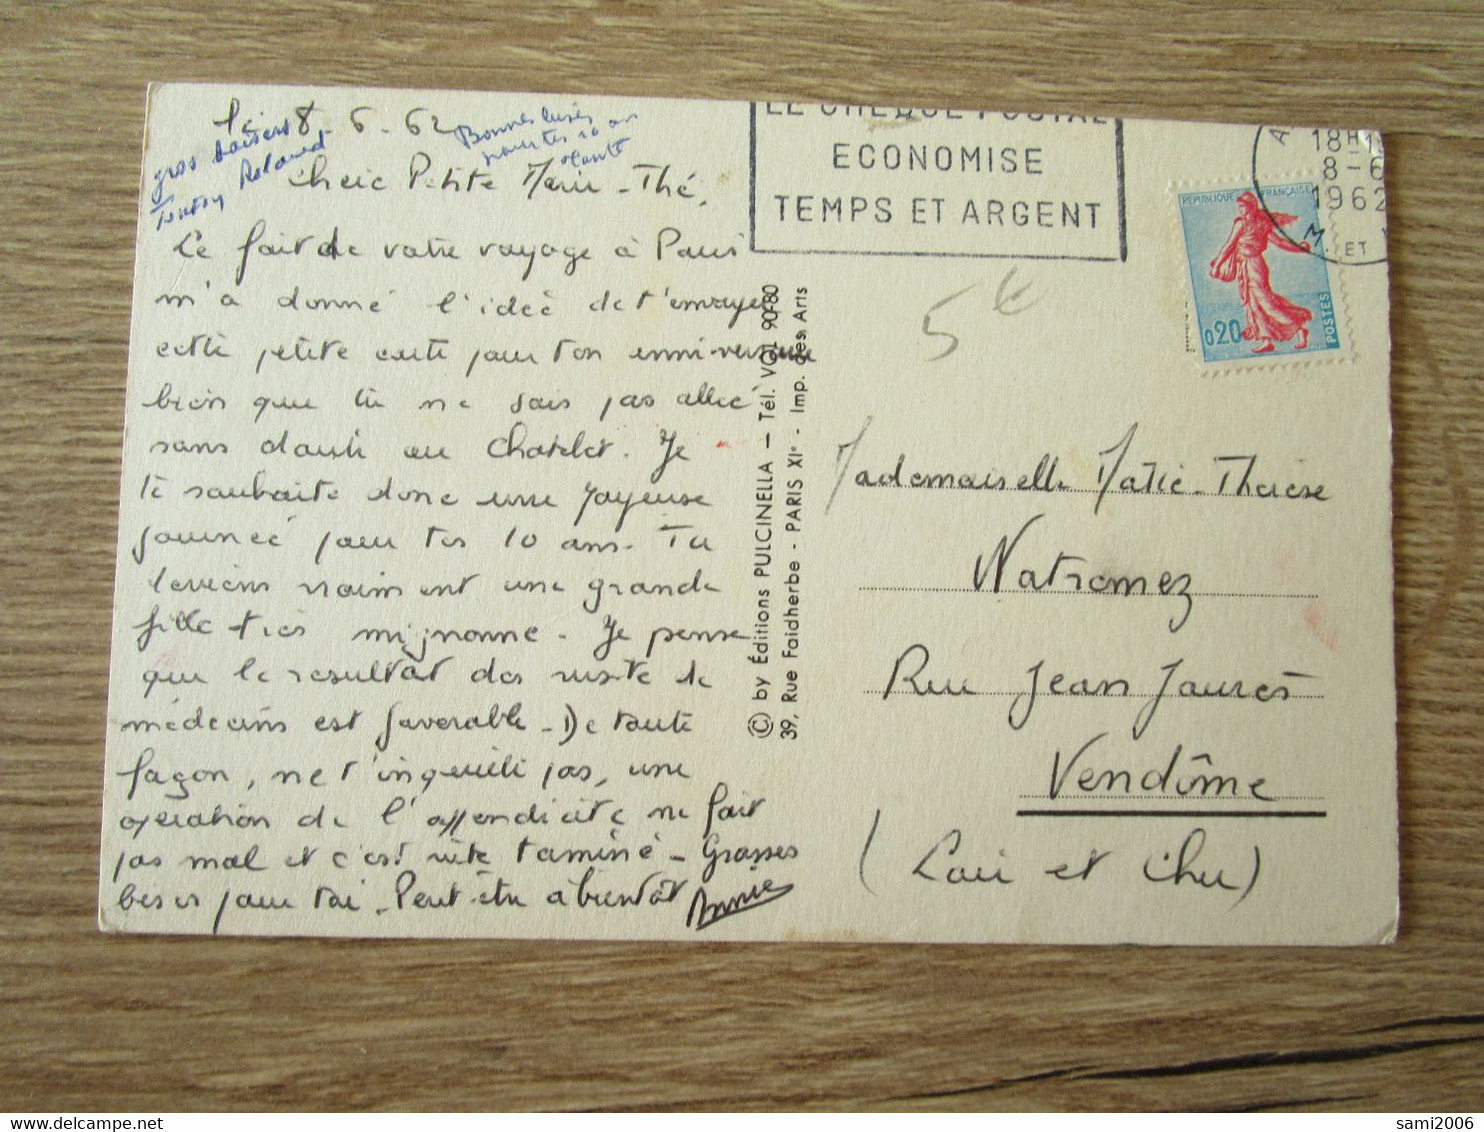 le 8.6.62
gros baisers
Tonton Roland
Bonnes bises
pour tes 10 ans
Chère Petite Marie-Thé,
Le fait de votre voyage à Paris
m'a donné l'idée de t'envoyer
cette petite carte pour ton anniversaire
bien que tu ne sois pas allée
sans doute au Chatelet. Je
te souhaite donc une Joyeuse
journée pour tes 10 ans. Tu
deviens vraiment une grande
fille très mignonne. Je pense
que le resultat des visite de
médecins est favorable. De toute
façon, ne t'inquièti pas, une
operation de l'appendicite ne fait
pas mal et c'est vite terminé. Grosses
bises pour toi. Peut-être à bientôt
Annie
© by Éditions PULCINELLA — Tél. VOL 90-80
39, Rue Faidherbe - PARIS XIe - Imp. des Arts
LE CHEQUE POSTAL
ECONOMISE
TEMPS ET ARGENT
18H
8-6
1962
ET
REPUBLIQUE FRANÇAISE
0,20
POSTES
5 €
Mademoiselle Marie-Thérèse
Natromez
Rue Jean Jaurès
Vendôme
(Loir et Cher)
sami2006